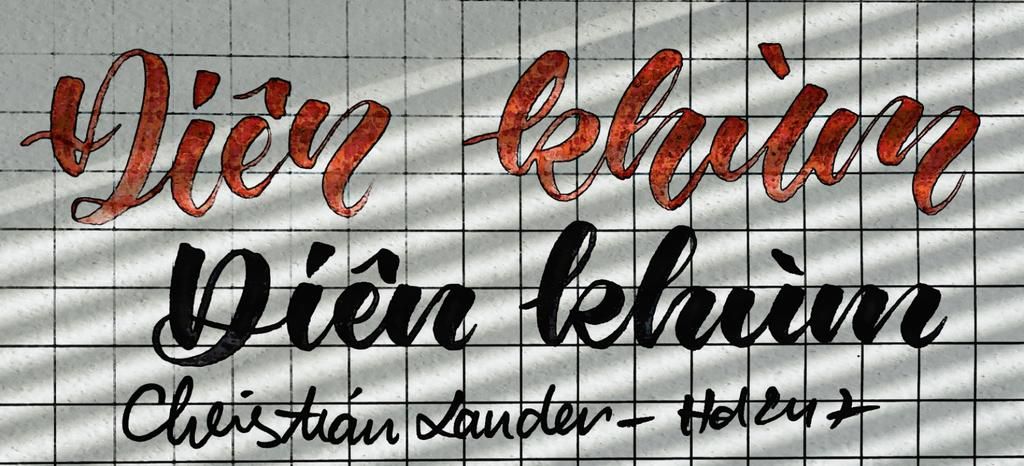 Diên khùm
Diên khùm
Christián Lander -